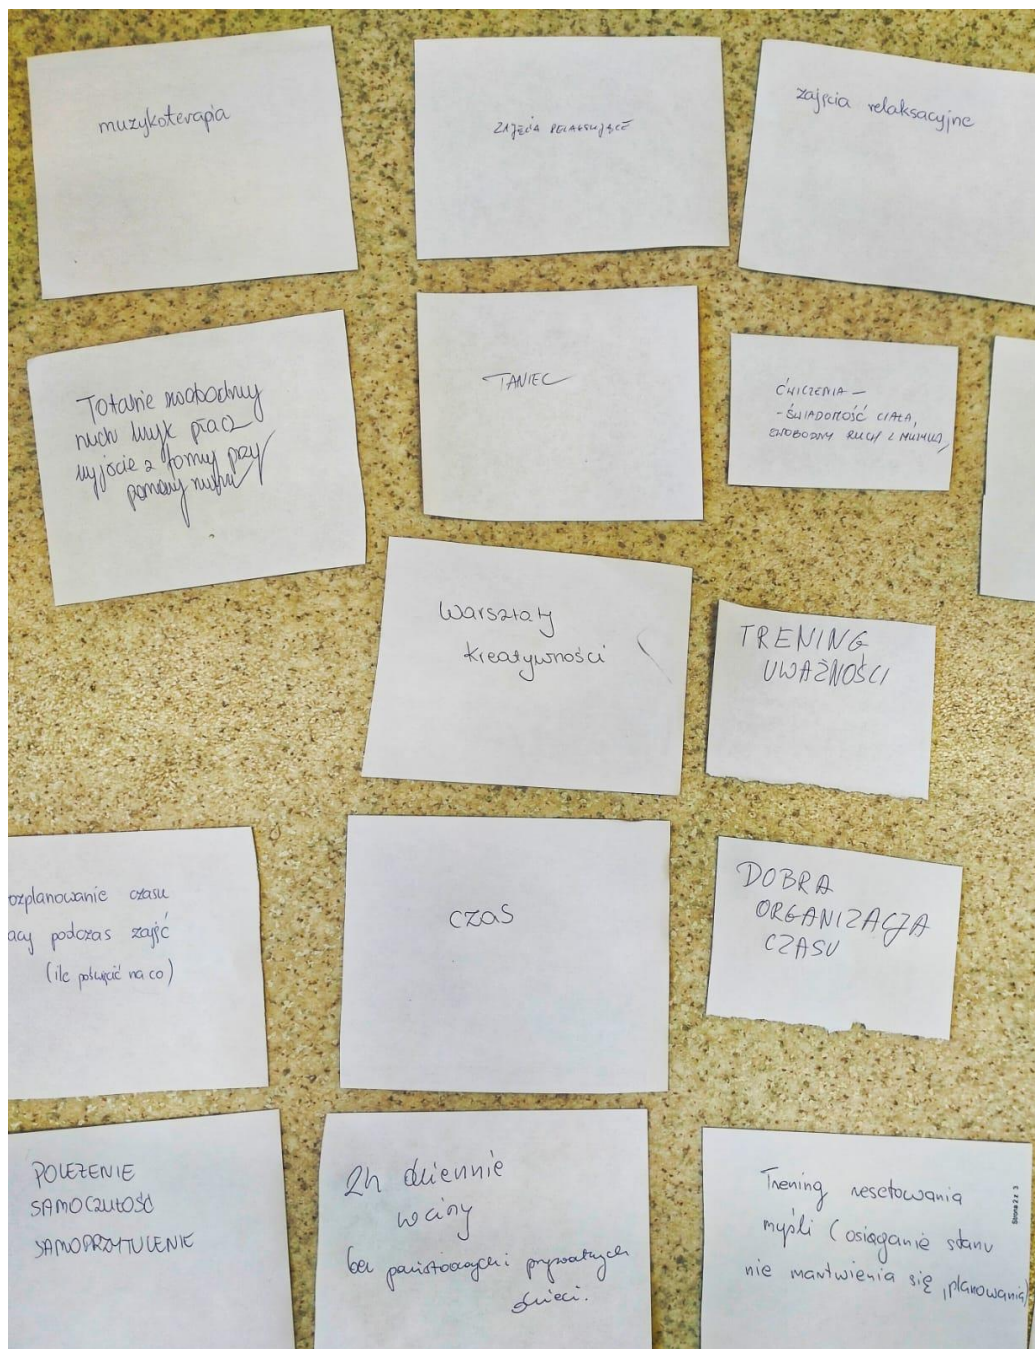 muzykoterapia
ZAJĘCIA RELAKSUJĄCE
zajęcia relaksacyjne
Totalnie swobodny
ruch krzyk płacz
wyjście z formy przy
pomocy ruchu
TANIEC
ĆWICZENIA –
- ŚWIADOMOŚĆ CIAŁA,
SWOBODNY RUCH Z MUZYKĄ
Warsztaty
kreatywności
TRENING
UWAŻNOŚCI
ozplanowanie czasu
acy podczas zajęć
(ile poświęcić na co)
czas
DOBRA
ORGANIZACJA
CZASU
POLEŻENIE
SAMOCZUŁOŚĆ
SAMOPRZYTULENIE
2h dziennie
w ciszy
bez państwowych i prywatnych
dzieci.
Trening resetowania
myśli (osiąganie stanu
nie martwienia się, planowania)
Strona 2 z 3